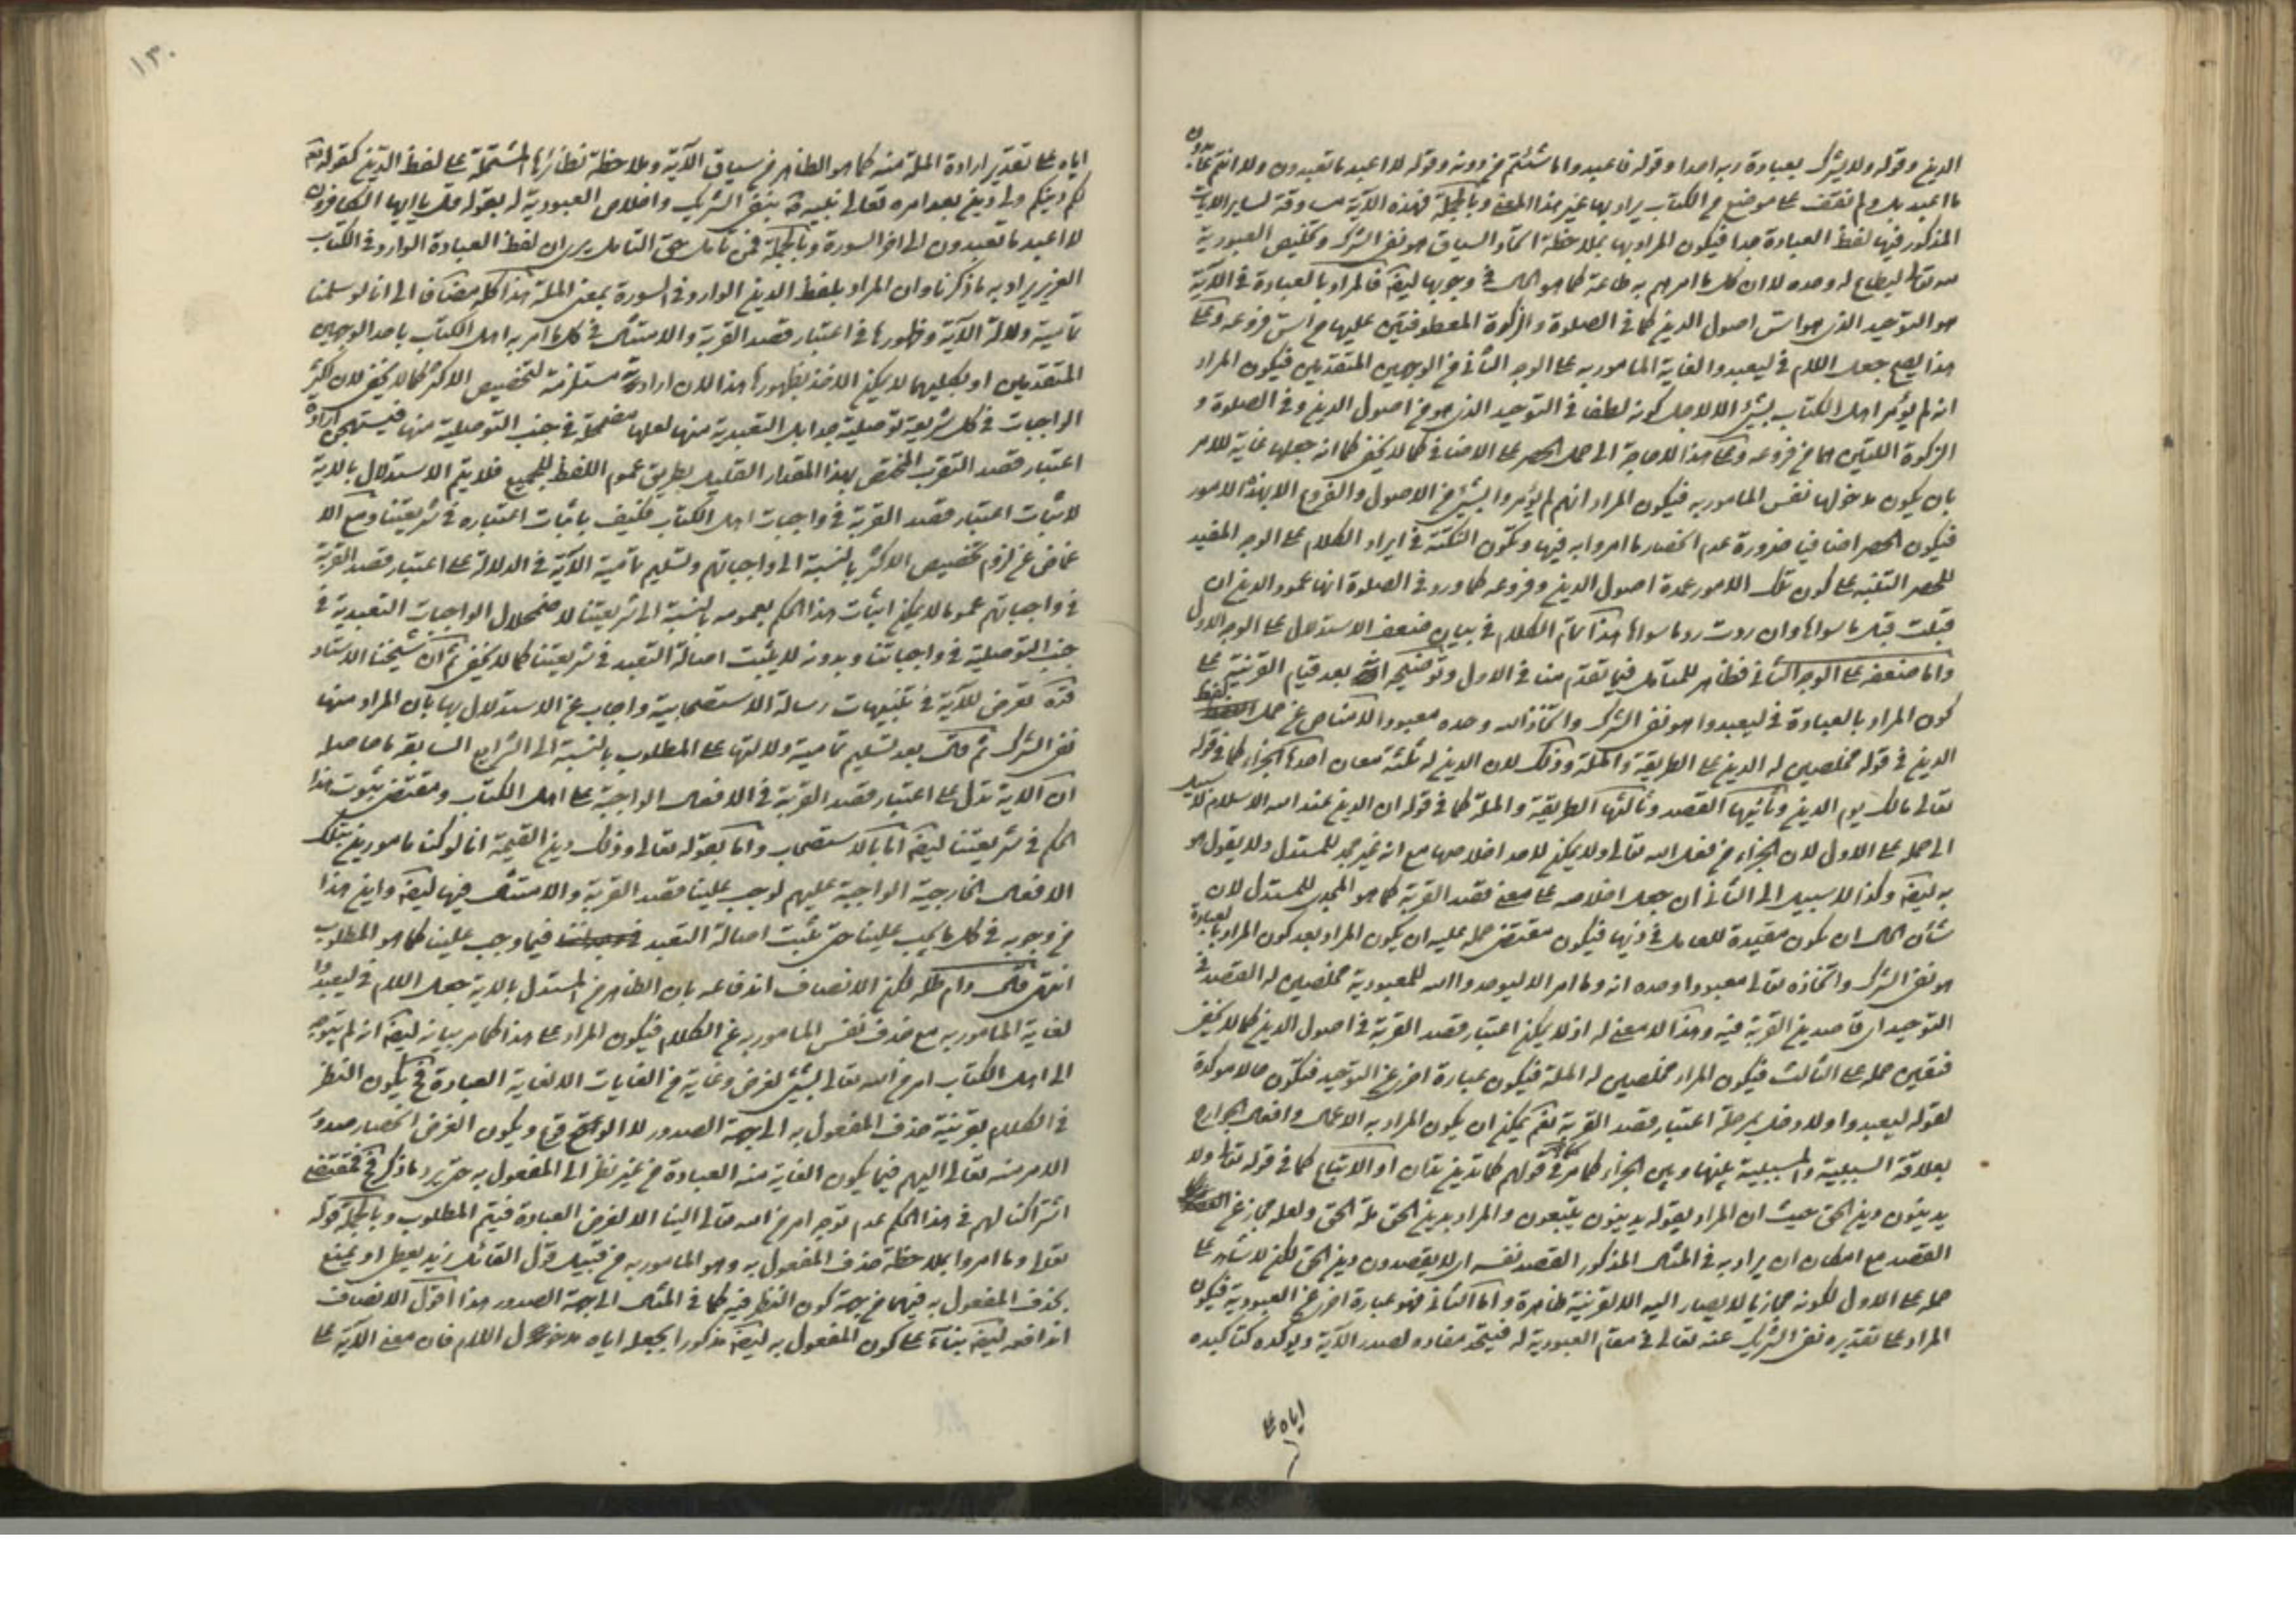 الدين وقوله ولا يشرك بعبادة ربه احدا وقوله فاعبدوا ما شئتم من دونه وقوله لا اعبد ما تعبدون ولا انتم عابدون
ما اعبد بل ولم نقف على موضع من الكتاب يراد بها غير هذا المعنى وبالجملة فهذه الآية مساوقة لساير الآيات
المذكور فيها لفظ العبادة جدا فيكون المراد بها بملاحظة السياق هو نفى الشرك وتخصيص العبودية
لله تعالى ليطاع له وحده لا ان كل ما امرهم به طاعة كما هو الحال في وجوبها ايضا فالمراد بالعبادة في الآية
هو التوحيد الذى هو اس اصول الدين كما في الصلوة والزكوة المعطوفتين عليها من اس فروعه وعلى
هذا يصح جعل اللام في ليعبدوا لغاية المامور به على الوجه الثانى من الوجهين المتقدمين فيكون المراد
انه لم يؤمر اهل الكتاب بشئ الا لاجل كونه لطفا في التوحيد الذى هو من اصول الدين وفى الصلوة و
الزكوة اللتين هما من فروعه وعلى هذا لا حاجة الى حمل الحصر على الاضافى كما لا يخفى كما انه جعلها غاية للامر
بان يكون مدخولها نفس المامور به فيكون المراد انهم لم يؤمروا بشئ من الاصول والفروع الا بهذه الامور
فيكون الحصر اضافيا ضرورة عدم انحصار ما امروا به فيها وتكون النكتة في ايراد الكلام على الوجه المفيد
للحصر التنبيه على كون تلك الامور عمدة اصول الدين وفروعه كما ورد في الصلوة انها عمود الدين ان
قبلت قبل ما سواها وان ردت رد ما سواها هذا تمام الكلام في بيان ضعف الاستدلال على الوجه الاول
واما ضعفه على الوجه الثانى فظاهر للمتامل فيما تقدم منا في الاول وتوضيحه انه بعد قيام القرينة على
كون المراد بالعبادة في ليعبدوا هو نفى الشرك واتخاذ الله وحده معبودا لا مناص عن حمل لفظ
الدين في قوله مخلصين له الدين على الطريقة والملة وذلك لان الدين له ثلثة معان احدها الجزاء كما في قوله
تعالى مالك يوم الدين وثانيها القصد وثالثها الطريقة والملة كما في قوله ان الدين عند الله الاسلام لا سبيل
الى حمله على الاول لان الجزاء من فعل الله تعالى ولا يمكن لاحد اخلاصها مع انه غير مجد للمستدل ولا يقول هو
به ايضا وكذا لا سبيل الى الثانى ان جعل اخلاصه على معنى قصد القربة كما هو المجدى للمستدل لان
شان الحال ان يكون مقيدة للعامل في ذيها فيكون مقتضى حمله عليه ان يكون المراد بعد كون المراد بالعبادة
هو نفى الشرك واتخاذه تعالى معبودا وحده انه وما امروا الا ليوحدوا الله للمعبودية مخلصين له القصد في
التوحيد اى قاصدين القربة فيه وهذا لا معنى له اذ لا يمكن اعتبار قصد القربة في اصول الدين كما لا يخفى
فتعين حمله على الثالث فيكون المراد مخلصين له الملة فيكون عبارة اخرى عن التوحيد فتكون حالا موكدة
لقوله ليعبدوا ولا دخل له بمرحلة اعتبار قصد القربة نعم يمكن ان يكون المراد به الاعمال وافعال الجوارح
بعلاقة السببية والمسببية بينها وبين الجزاء كما مر في قولهم كما تدين تدان او الاتباع كما في قوله تعالى ولا
يدينون دين الحق حيث ان المراد بقوله يدينون يتبعون والمراد بدين الحق ملة الحق ولعله مجاز عن
القصد مع امكان ان يراد به في المثال المذكور القصد نفسه اى لا يقصدون دين الحق لكن لا شاهد على
حمله على الاول لكونه مجازيا لا يصار اليه الا لقرينة ظاهرة واما الثانى فهو عبارة اخرى عن العبودية فيكون
المراد على تقديره نفى الشريك عنه تعالى في مقام العبودية له فيتحد مفاده لصدر الآية ويؤكده كتاكيده
اياه على
١٣٠
اياه على تقدير ارادة الملة منه كما هو الظاهر من سياق الآية وملاحظة نظائرها المشتملة على لفظ الدين كقوله تعالى
لكم دينكم ولى دين بعد امره تعالى نبيه بنفى الشريك واخلاص العبودية له بقوله قل يا ايها الكافرون
لا اعبد ما تعبدون الى اخر السورة وبالجملة فمن تامل حق التامل يرى ان لفظ العبادة الوارد في الكتاب
العزيز يراد به ما ذكرنا وان المراد بلفظ الدين الوارد في السورة بمعنى الملة هذا كله مضافا الى انا لو سلمنا
تمامية دلالة الآية وظهورها في اعتبار قصد القربة والامتثال في كل ما امر به اهل الكتاب باحد الوجهين
المتقدمين او بكليهما لا يمكن الاخذ بظهورها هذا لان ارادته مستلزمة لتخصيص الاكثر كما لا يخفى لان اكثر
الواجبات في كل شريعة توصلية جدا بل التعبدية منها لعلها مضمحلة في جنب التوصلية منها فيستهجن ارادة
اعتبار قصد التقرب المختص بهذا المقدار القليل بطريق عموم اللفظ للجميع فلا يتم الاستدلال بالآية
لاثبات اعتبار قصد القربة في واجبات اهل الكتاب فكيف باثبات اعتباره في شريعتنا ومع الا
غماض عن لزوم تخصيص الاكثر بالنسبة الى واجباتهم وتسليم تمامية الآية في الدلالة على اعتبار قصد القربة
في واجباتهم عموما لا يمكن اثبات هذا الحكم بعمومه بالنسبة الى شريعتنا لاضمحلال الواجبات التعبدية في
جنب التوصلية في واجباتنا وبدونه لا يثبت اصالة التعبد في شريعتنا كما لا يخفى ثم ان شيخنا الاستاد
قده تعرض للآية في تنبيهات رسالة الاستصحابية واجاب عن الاستدلال بها بان المراد منها
نفى الشرك ثم قال بعد تسليم تمامية دلالتها على المطلوب بالنسبة الى الشرايع السابقة ما حاصله
ان الآية تدل على اعتبار قصد القربة في الافعال الواجبة على اهل الكتاب ومقتضى ثبوت هذا
الحكم في شريعتنا ايضا اما بالاستصحاب واما بقوله تعالى وذلك دين القيمة انا لو كنا مامورين بتلك
الافعال الخارجية الواجبة عليهم لوجب علينا قصد القربة والامتثال فيها ايضا واين هذا
من وجوبه في كل ما يجب علينا حتى يثبت اصالة التعبد فيما وجب علينا كما هو المطلوب
انتهى قال دام ظله لكن الانصاف اندفاعه بان الظاهر من المستدل بالآية جعل اللام في ليعبدوا
لغاية المامور به مع حذف نفس المامور به عن الكلام فيكون المراد على هذا كما مر بيانه ايضا انه لم يتوجه
الى اهل الكتاب امر من الله تعالى بشئ لغرض وغاية من الغايات الا لغاية العبادة فح يكون النظر
في الكلام بقرينة حذف المفعول به الى جهة الصدور لا الوقوع ويكون الغرض انحصار صدور
الامر منه تعالى اليهم فيما يكون الغاية منه العبادة من غير نظر الى المفعول به حتى يرد ما ذكر فح فمقتضى
اشتراكنا لهم في هذا الحكم عدم توجه امر من الله تعالى الينا الا لغرض العبادة فيتم المطلوب وبالجملة قوله
تعالى وما امروا بملاحظة حذف المفعول به وهو المامور به من قبيل قول القائل زيد يعطى او يمنع
بحذف المفعول به فيهما من جهة كون النظر فيه كما في المثال الى جهة الصدور هذا اقول الانصاف
اندافعه ايضا بناء على كون المفعول به ايضا مذكورا بجعله اياه مدخول اللام فان معنى الآية على